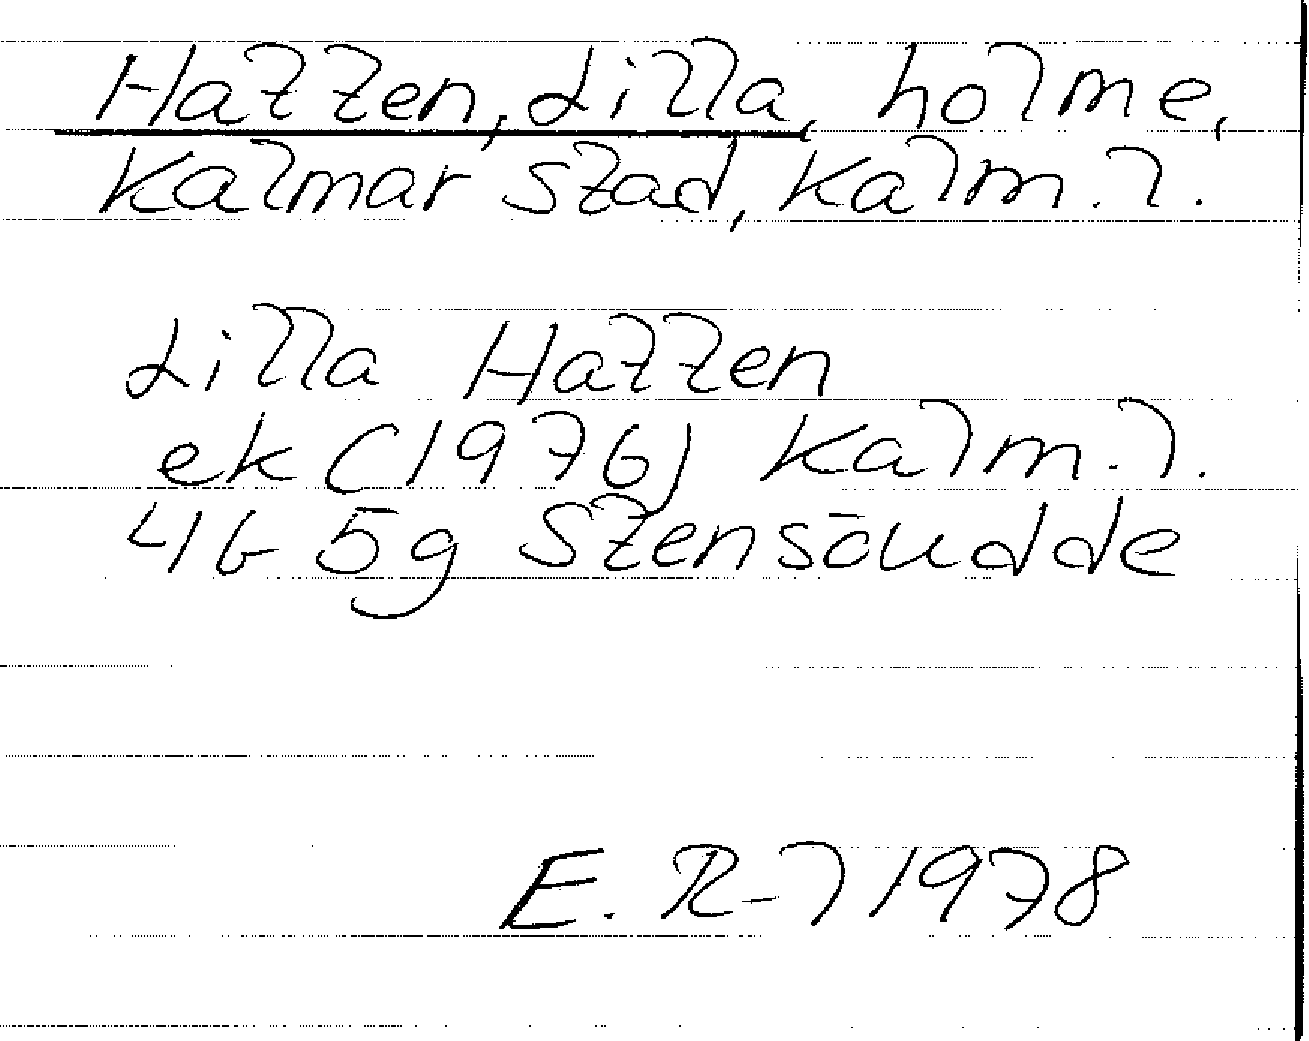 Hatten, Lilla, holme,
Kalmar stad, Kalm. l.
Lilla Hatten
ek (1976) Kalm. l.
4G 5g Stensöudde
E. R-l 1978